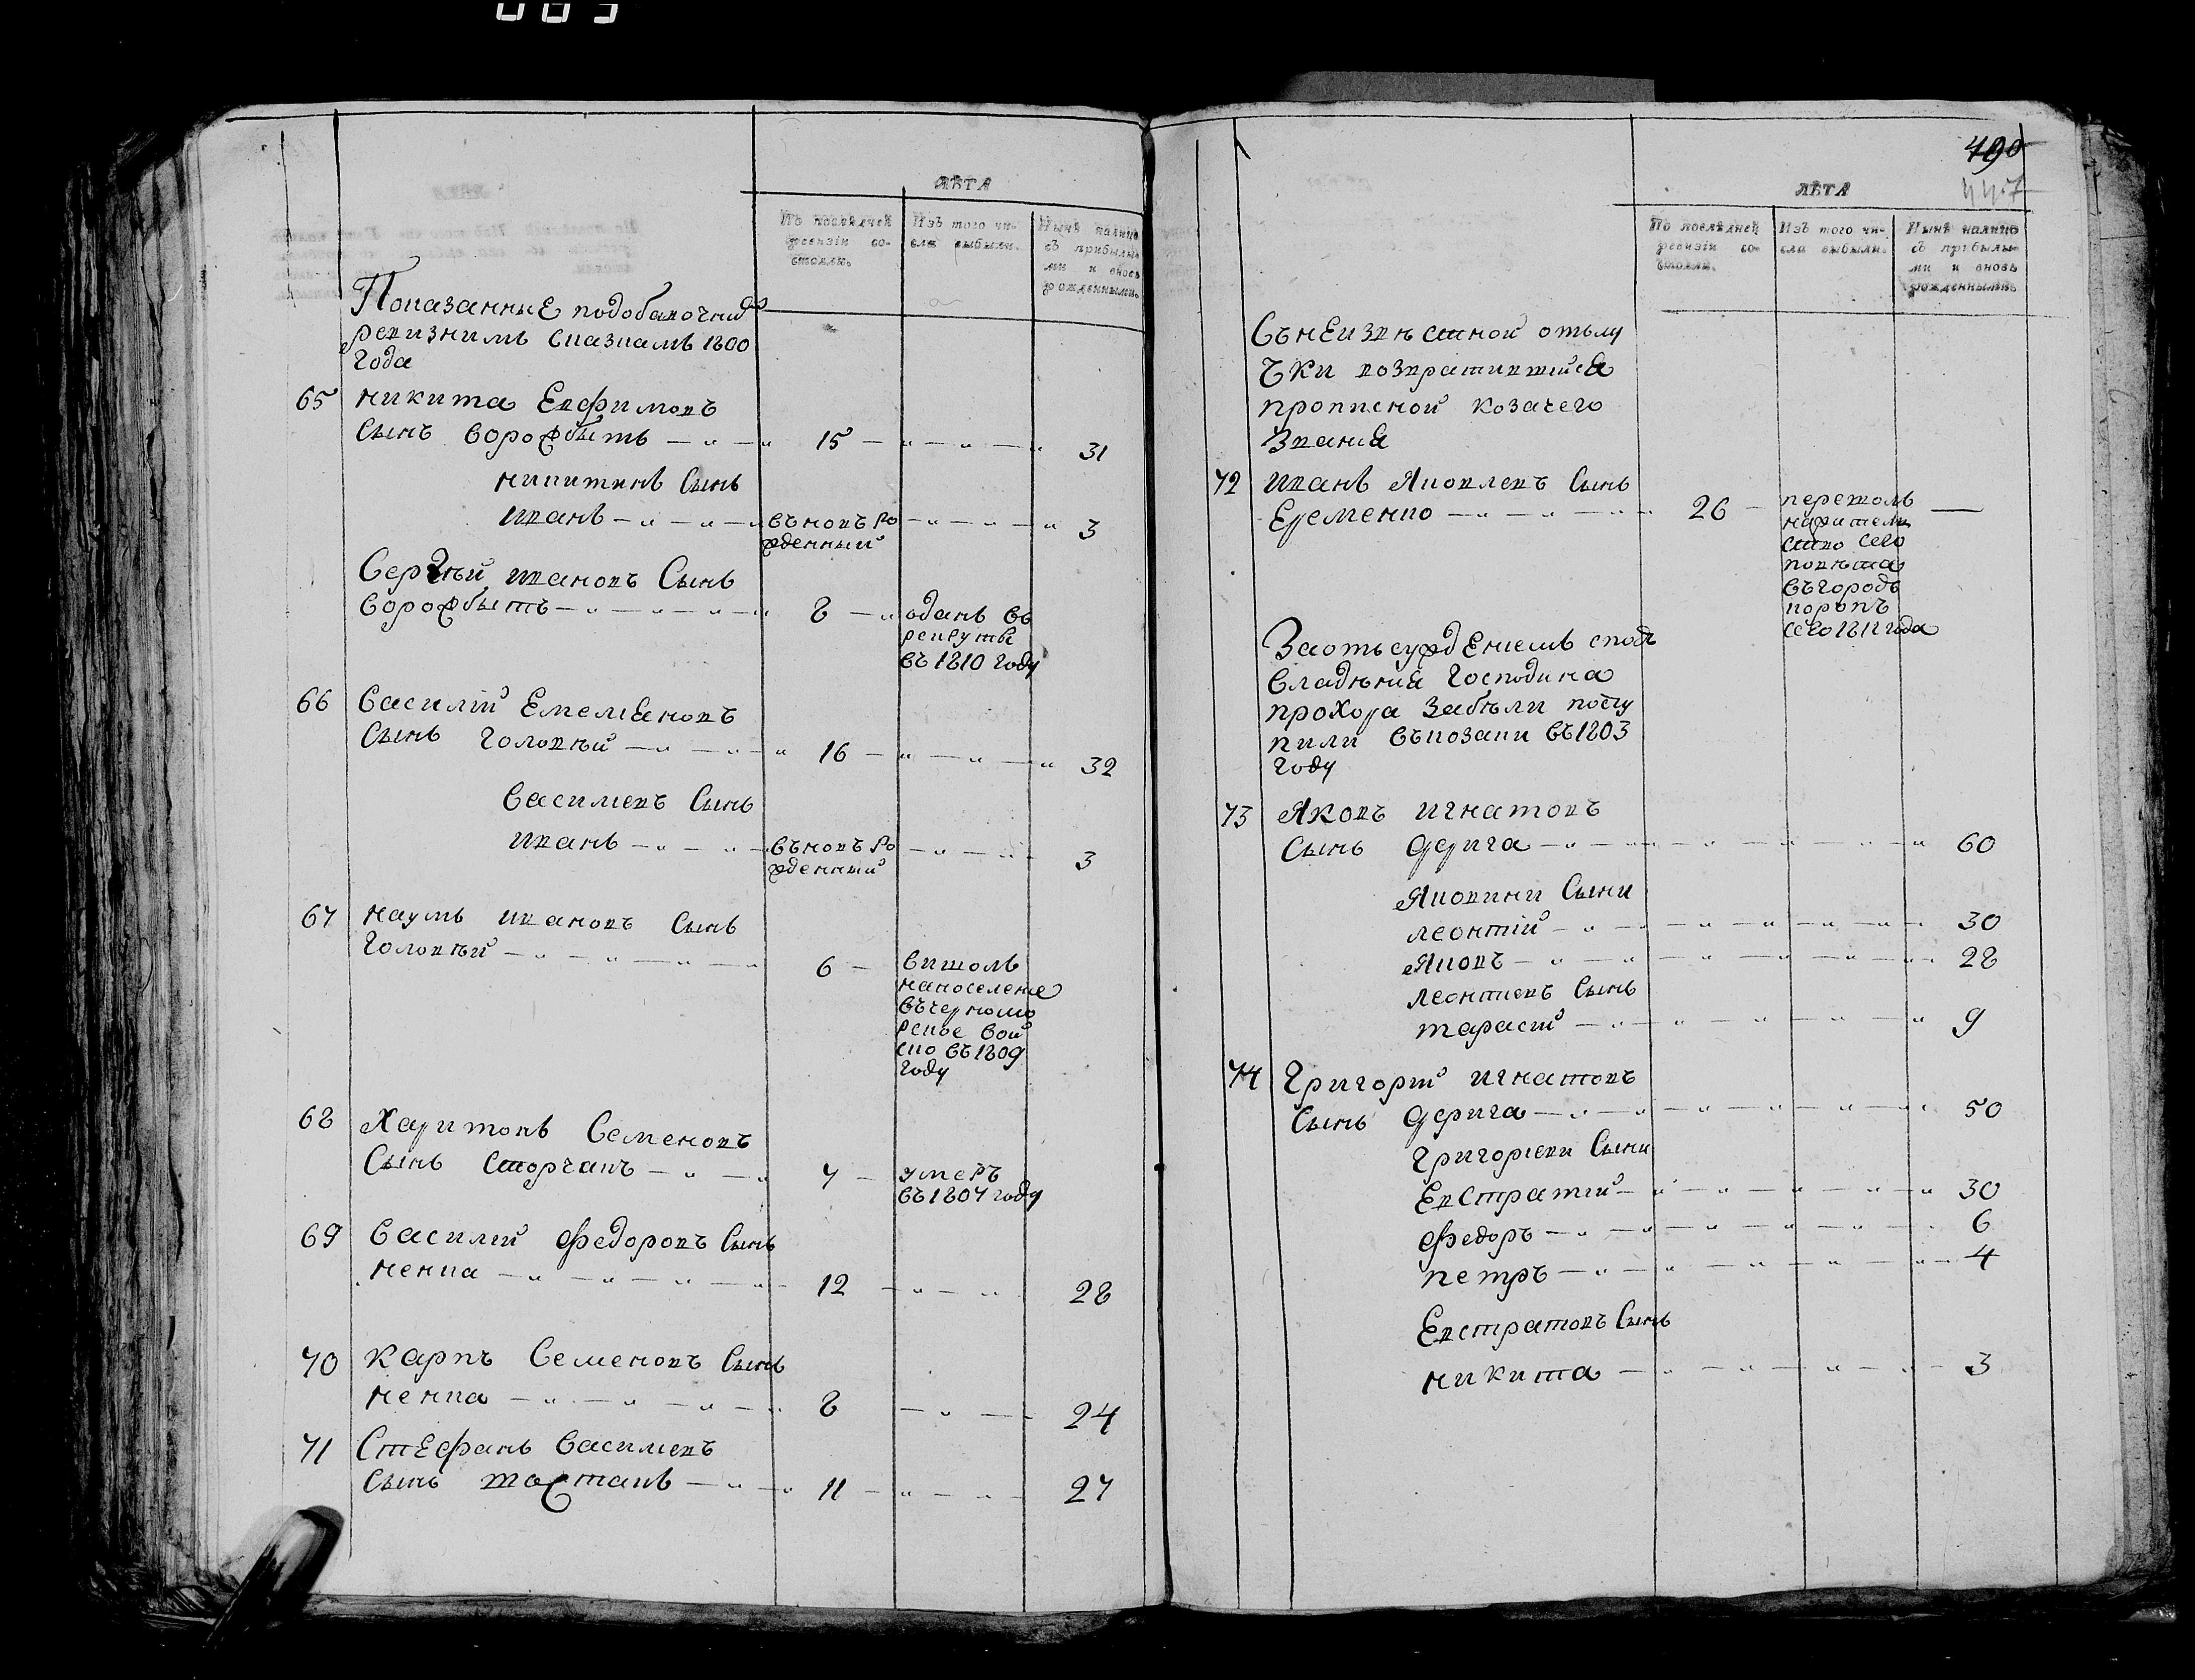 ЛѢТА
По послѣдней ревизіи со-
стояло.
Изъ того чи-
сла выбыли.
Нынѣ налицо
съ прибылы-
ми и вновь
рожденными.
Показанние подобавочнимъ
ревизкимъ сказкамъ 1800
года
65 никита Евфимовъ
Сынъ Воробьıть — 15 — 31
никитинъ Сынъ
иванъ — въновь ро
жденный — 3
Сергѣй ивановъ Сынъ
Воробьıть — 8 — одань въ
рекруты
въ 1810 году
66 Василій Емелiановъ
Сынъ Головнѣй — 16 — 32
Василиевъ Сынъ
иванъ — въновь ро
жденный — 3
67 наумъ ивановъ Сынъ
Головнѣй — 6 — вишолъ
напоселение
въчерномо
рское вой
ско въ 1809
году
68 Харитонъ Семеновъ
Сынъ Сторчакъ — 7 — умеръ
въ 1807 году
69 Василий Федоровъ Сынъ
ненка — 12 — 28
70 Карпъ Семеновъ Сынъ
ненка — 8 — 24
71 Стефанъ Василиевъ
Сынъ шостакъ — 11 — 27
490
447
ЛѢТА
По послѣдней
ревизіи со-
стояло.
Изъ того чи-
сла выбыли.
Нынѣ налицо
съ прибылы-
ми и вновь
рожденными
Сънеизвѣстной отьлу
чки возвратившийся
прописной козачего
Звания
72 иванъ Яковлевъ Сынъ
Еременко — 26 — перешолъ
нажитель
ство сего
повѣта
въгородъ
коропъ
сего 1811 года
Заотьсужденiемъ сподъ
владѣния Господина
прохора Забѣли посту
пили въкозаки въ 1803
году
73 Яковъ игнатовъ
Сынъ Дерига — 60
Яковини Сыни
леонтий — 30
Яковъ — 28
леонтиевъ Сынъ
тарасий — 9
74 Григорий игнатовъ
Сынъ Дерига — 50
Григориеви Сыни
Евстратий — 30
Федоръ — 6
петръ — 4
Евстратовъ Сынъ
никита — 3